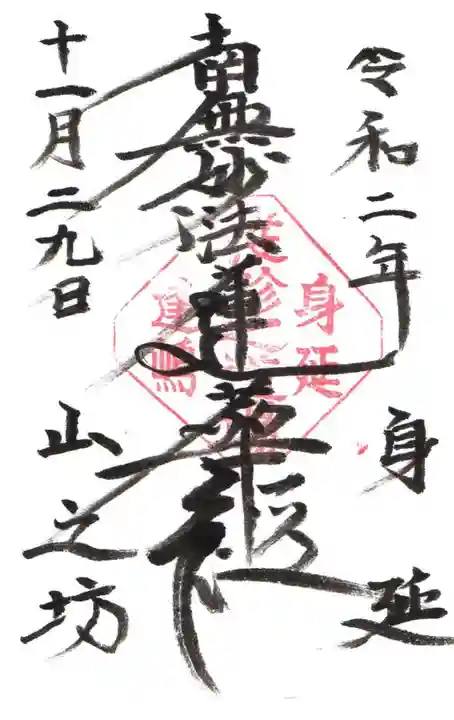 令和二年
身延
南無妙法蓮華経
十一月二九日
山之坊
身延